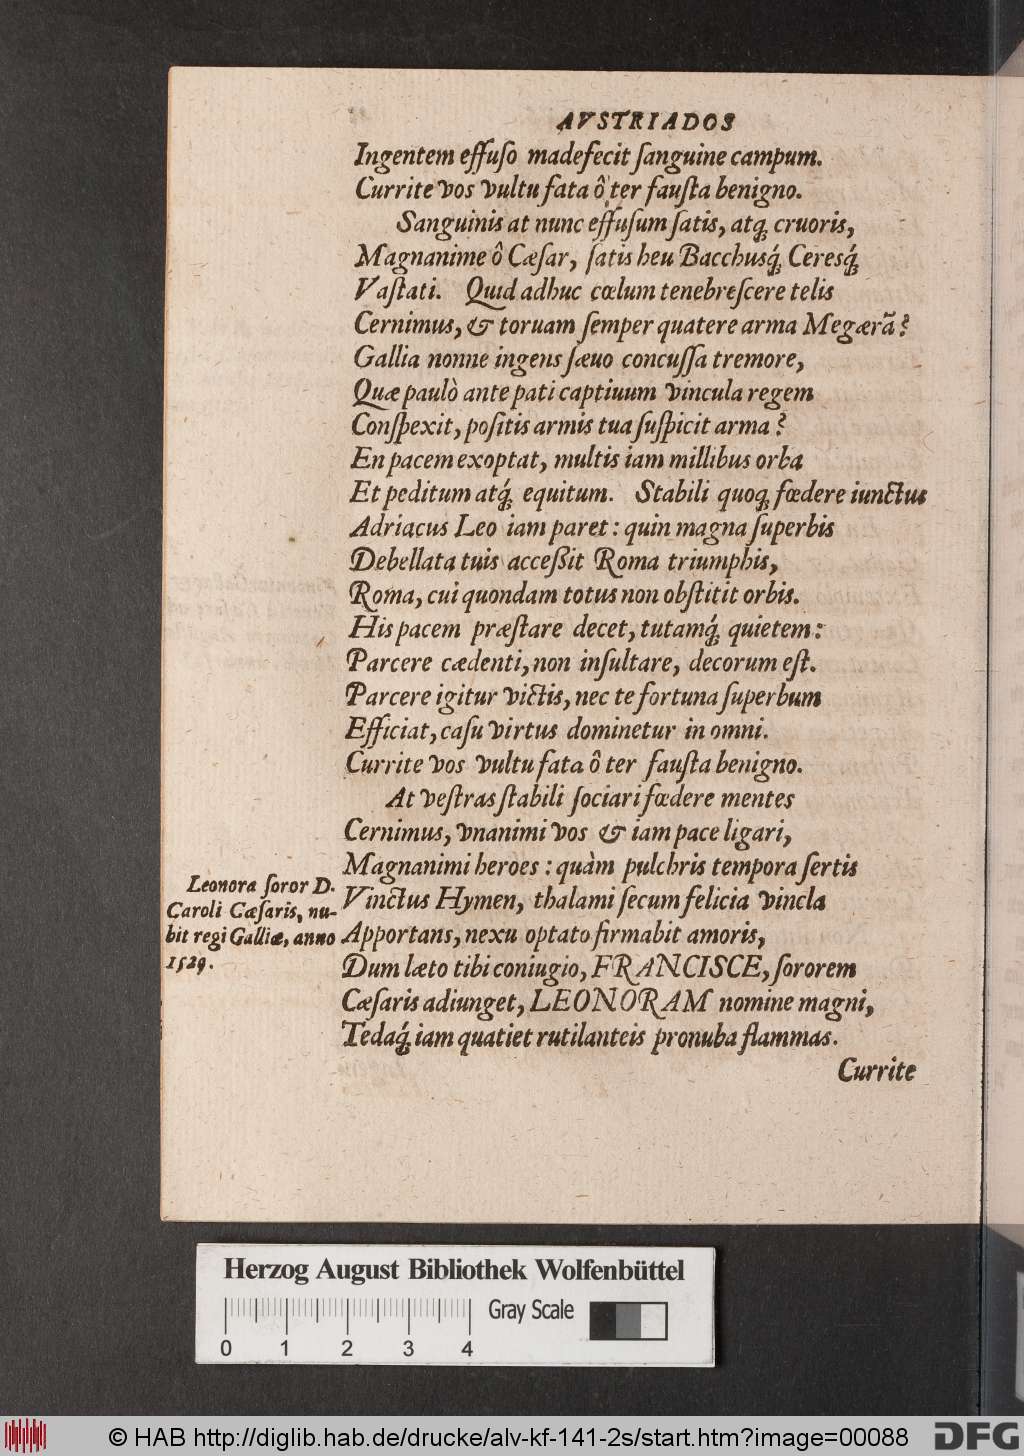 AVSTRIADOS
Ingentem effuſo madefecit ſanguine campum.
Currite vos vultu fata ô ter fauſta benigno.
Sanguinis at nunc effuſum ſatis, atq́; cruoris,
Magnanime ô Cæſar, ſatis heu Bacchusq́; Ceresq́;
Vaſtati. Quid adhuc cœlum tenebreſcere telis
Cernimus, & toruam ſemper quatere arma Megærā?
Gallia nonne ingens ſæuo concuſſa tremore,
Quæ paulò ante pati captiuum vincula regem
Conſpexit, poſitis armis tua ſuſpicit arma?
En pacem exoptat, multis iam millibus orba
Et peditum atq́; equitum. Stabili quoq; fœdere iunctus
Adriacus Leo iam paret: quin magna ſuperbis
Debellata tuis acceßit Roma triumphis,
Roma, cui quondam totus non obſtitit orbis.
His pacem præſtare decet, tutamq́; quietem:
Parcere cædenti, non inſultare, decorum eſt.
Parcere igitur victis, nec te fortuna ſuperbum
Efficiat, caſu virtus dominetur in omni.
Currite vos vultu fata ô ter fauſta benigno.
At veſtras ſtabili ſociari fœdere mentes
Cernimus, vnanimi vos & iam pace ligari,
Magnanimi heroes: quàm pulchris tempora ſertis
Vinctus Hymen, thalami ſecum felicia vincla
Apportans, nexu optato firmabit amoris,
Dum læto tibi coniugio, FRANCISCE, ſororem
Cæſaris adiunget, LEONORAM nomine magni,
Tedaq́; iam quatiet rutilanteis pronuba flammas.
Currite
Leonora ſoror D.
Caroli Cæſaris, nu-
bit regi Galliæ, anno
1529.
Herzog August Bibliothek Wolfenbüttel
Gray Scale
0 1 2 3 4
© HAB http://diglib.hab.de/drucke/alv-kf-141-2s/start.htm?image=00088
DFG